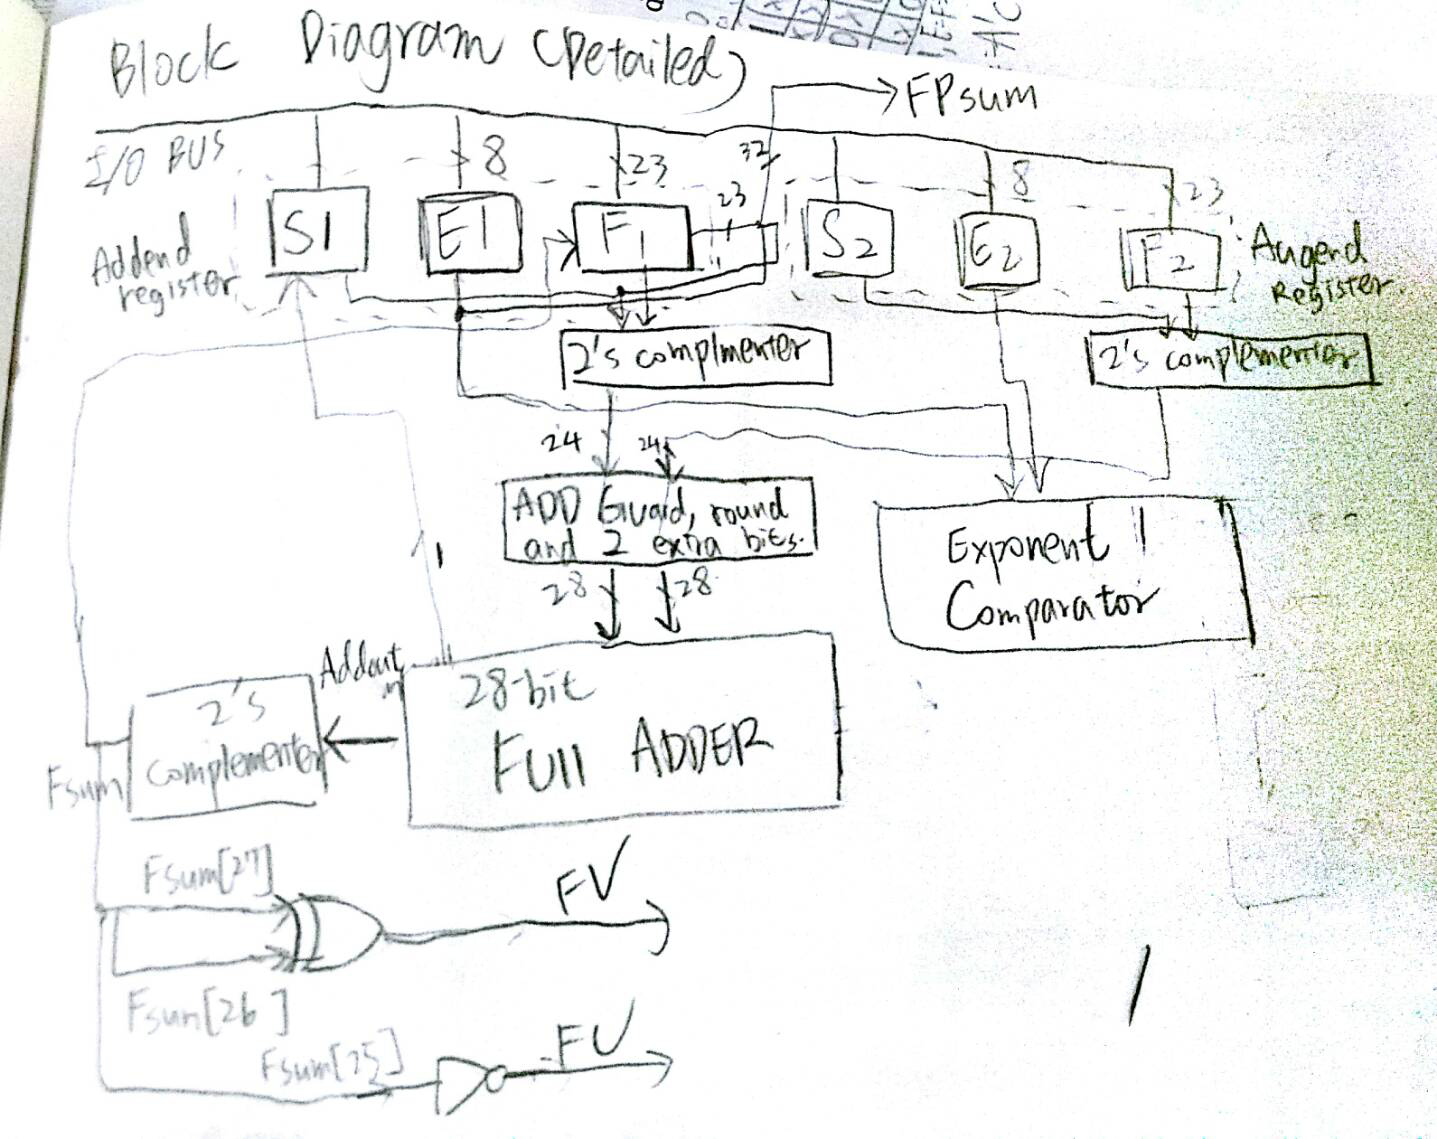 Block Diagram (Detailed)
FPsum
I/O BUS
8
23
32
23
8
23
S1
E1
F1
S2
E2
F2
Addend
register
Augend
Register.
2's complmenter
2's complementer
24
24
ADD Guard, round
and 2 extra bits.
28
28
Exponent
Comparator
Addout
28-bit
Full ADDER
2's
complementer
Fsum
Fsum[27]
FV
Fsum[26]
FU
Fsum[25]